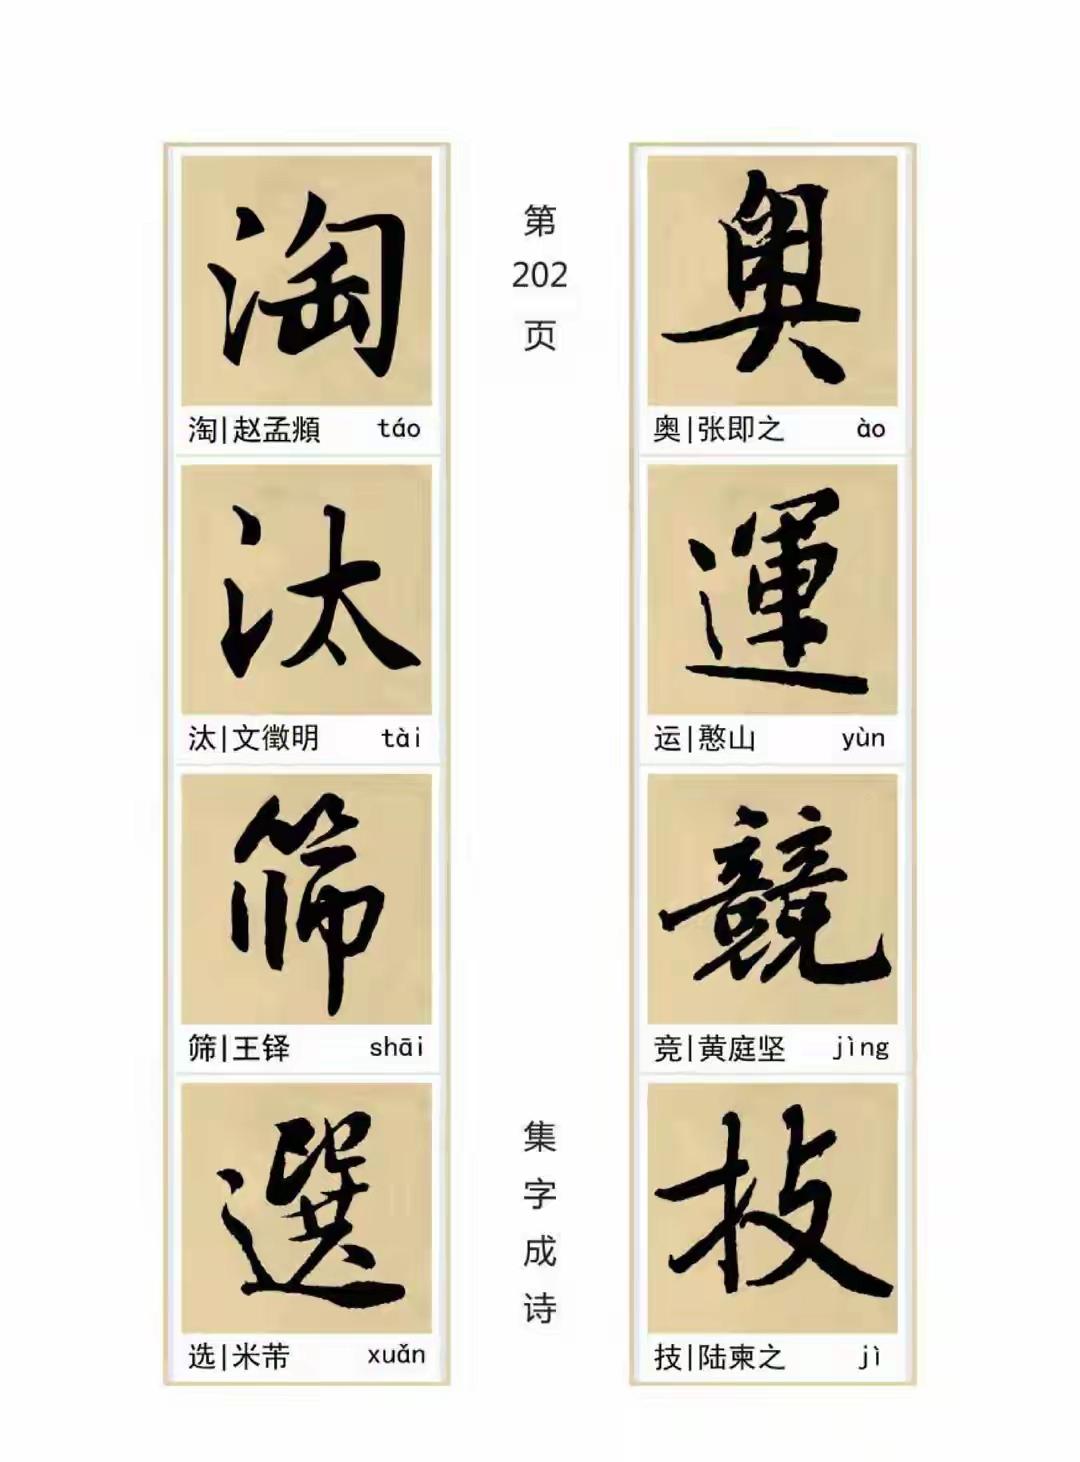 奥
奥|张即之 ào
運
运|憨山 yùn
競
竞|黄庭坚 jìng
技
技|陆柬之 jì
第
202
页
集
字
成
诗
淘
淘|赵孟頫 táo
汰
汰|文徵明 tài
筛
筛|王铎 shāi
選
选|米芾 xuǎn